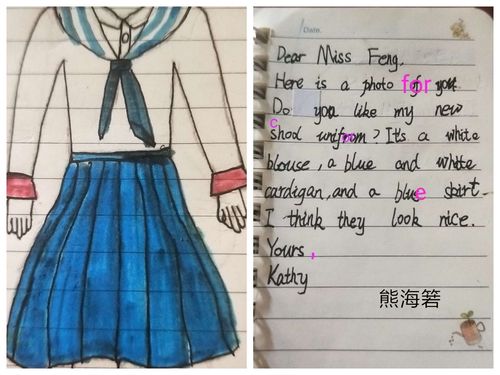 Date.
Dear Miss Feng.
Here is a photo for you
Do you like my new
school uniform? It's a white
blouse, a blue and white
cardigan, and a blue skirt
I think they look nice.
Yours,
Kathy
熊海箬